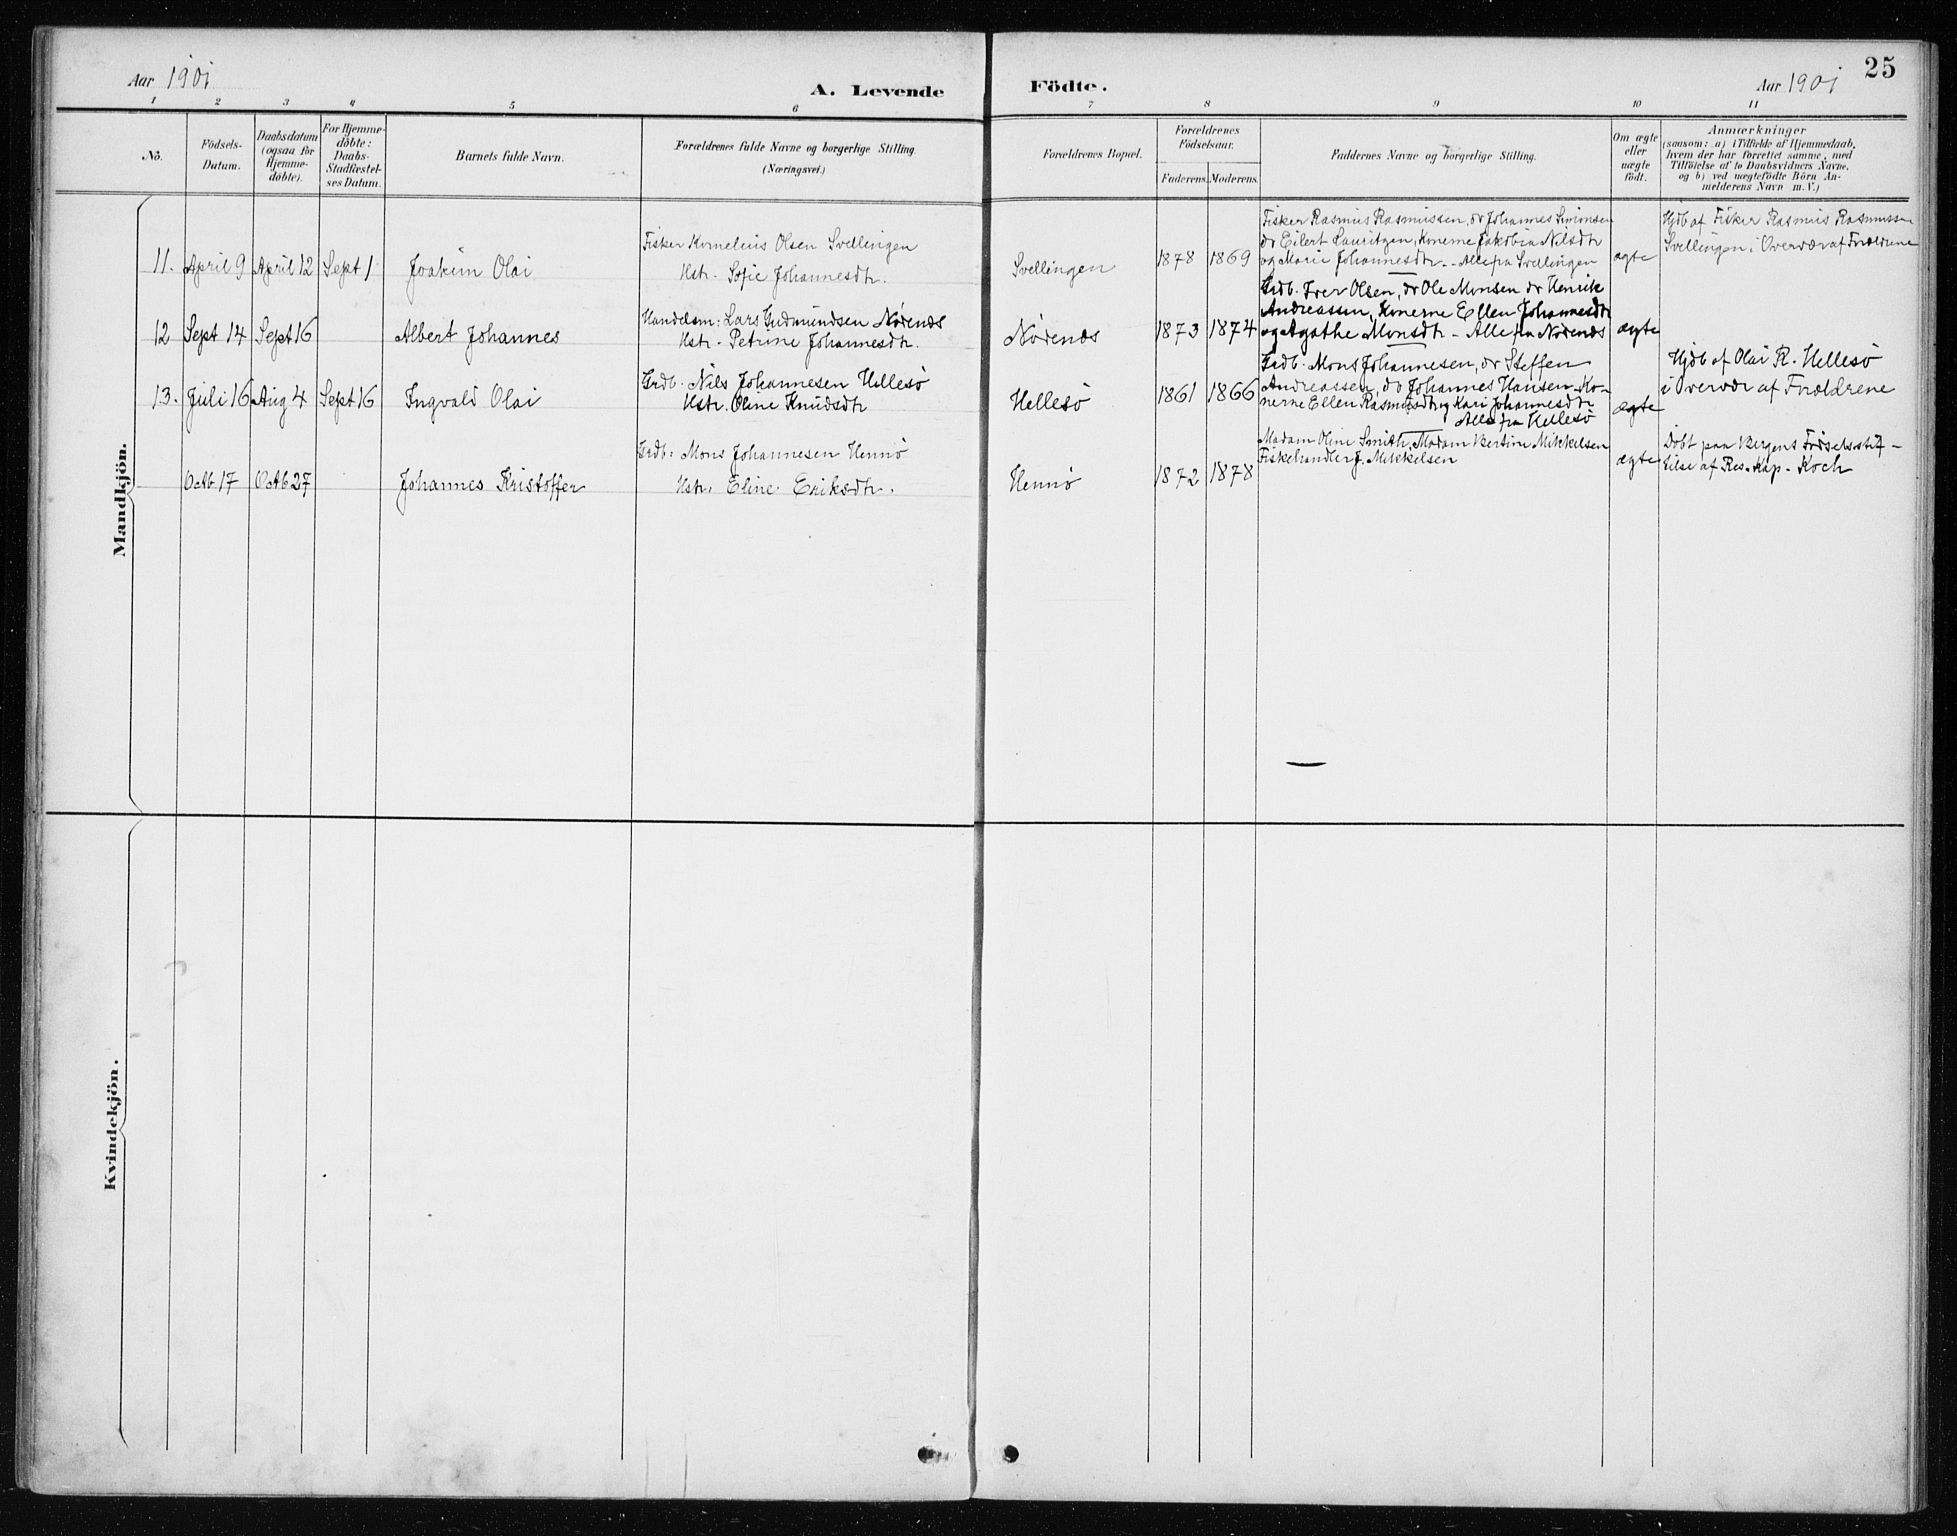 Aar 1901
A. Levende
Födte.
Aar 1901
25
1 2 3 4 5 6 7 8 9 10 11
No.
Födsels-
Datum.
Daabsdatum
(ogsaa for
Hjemme-
döbte).
For Hjemme-
döbte:
Daabs-
Stadfæstel-
ses Datum.
Barnets fulde Navn.
Forældrenes fulde Navne og borgerlige Stilling.
(Næringsvei.)
Forældrenes Bopæl.
Forældrenes
Födselsaar.
Faderens. Moderens.
Faddernes Navne og borgerlige Stilling.
Om ægte
eller
uægte
födt.
Anmærkninger
(saasom: a) i Tilfælde af Hjemmedaab,
hvem der har forrettet samme, med
Tilföielse af to Daabsvidners Navne,
og b) ved uægtefödte Börn An-
melderens Navn m. V.)
Mandkjön.
11. April 9 April 12 Sept 1 Joakim Olai
Fisker Kornelius Olsen Svellingen
Hstr. Sofie Johannesdtr.
Svellingen 1878 1869
Fisker Rasmus Rasmussen, do Johannes Simonsen
do Eilert Lauritzen, Konerne Jakobia Nilsdtr
og Marie Johannesdtr. - Alle fra Svellingen
ægte
Hjdb af Fisker Rasmus Rasmussen
Svellingen i Overvær af Forældrene
12 Sept 14 Sept 16 Albert Johannes
Handelsm: Lars Gudmundsen Nørenæs
Hstr. Petrine Johannesdtr.
Nørenæs 1873 1874
Grdb. Iver Olsen, do Ole Monsen do Henrik
Andreassen, Konerne Ellen Johannesdtr
og Agathe Monsdtr - Alle fra Nørenæs
ægte
13. Juli 16 Aug 4 Sept 16 Ingvald Olai
Grdb. Nils Johannesen Hellesø
Hstr. Oline Knudsdtr
Hellesø 1861 1866
Grdb. Mons Johannesen, do Steffen
Andreassen, do Johannes Hansen Ko-
nerne Ellen Rasmusdtr og Kari Johannesdtr
Alle fra Hellesø
ægte
Hjdb af Olai R. Hellesø
i Overvær af Forældrene
Octb 17 Octb 27 Johannes Kristoffer
Grdb: Mons Johannesen Hennø
Hstr. Eline Eriksdtr.
Hennø 1872 1878
Madam Oline Smith, Madam Bertine Mikkelsen
Fiskehandler J. Mikkelsen
ægte
Døbt paa Bergens Fødselsstif-
telse af Res. Kap. Koch
Kvindekjön.